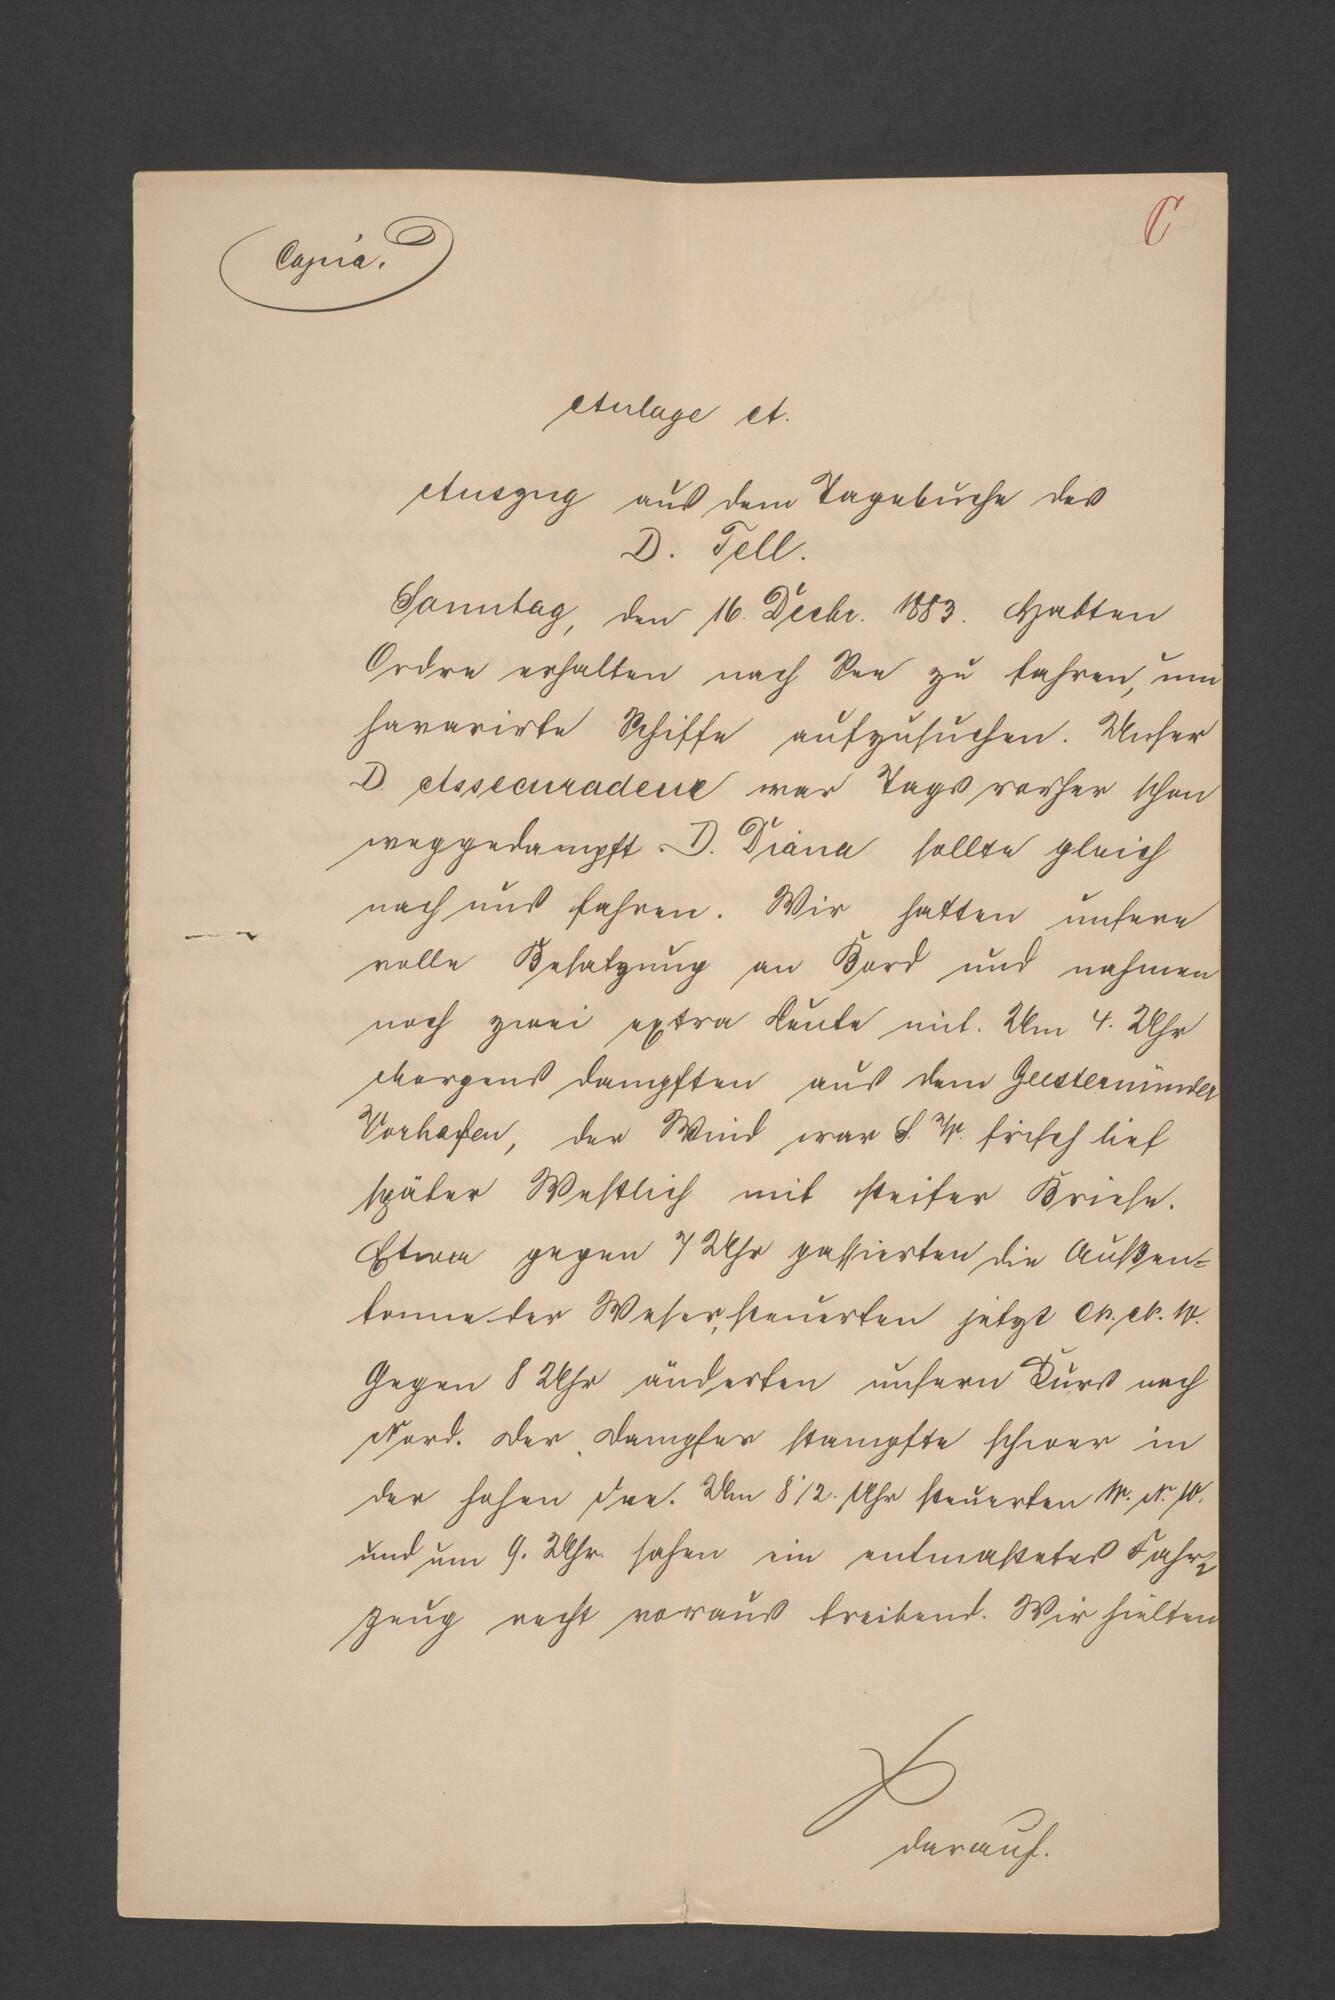 C
Copia.
Anlage A.
Auszug aus dem Tagebuche des
D. Tell.
Sonntag, den 16. Decbr. 1883. Hatten
Ordre erhalten nach See zu fahren, um
havarirte Schiffe aufzusuchen. Unser
D. Assecuradeur war Tags vorher schon
weggedampft. D. Diana sollte gleich
nach uns fahren. Wir hatten unsere
volle Besatzung an Bord und nahmen
noch zwei extra Leute mit. Um 4. Uhr
Morgens dampften aus dem Geestemünder
Vorhafen, der Wind war S. W. frisch lief
später Westlich mit steifer Briese.
Etwa gegen 7 Uhr passierten die Außen=
tonne der Weser, steuerten jetzt N. N. W.
Gegen 8 Uhr änderten unsern Kurs nach
Nord. Der Dampfer stampfte schwer in
der hohen See. Um 8 1/2. Uhr steuerten W. N. W.
und um 9. Uhr sahen ein entmastetes Fahr=
zeug recht voraus treibend. Wir hielten
darauf.